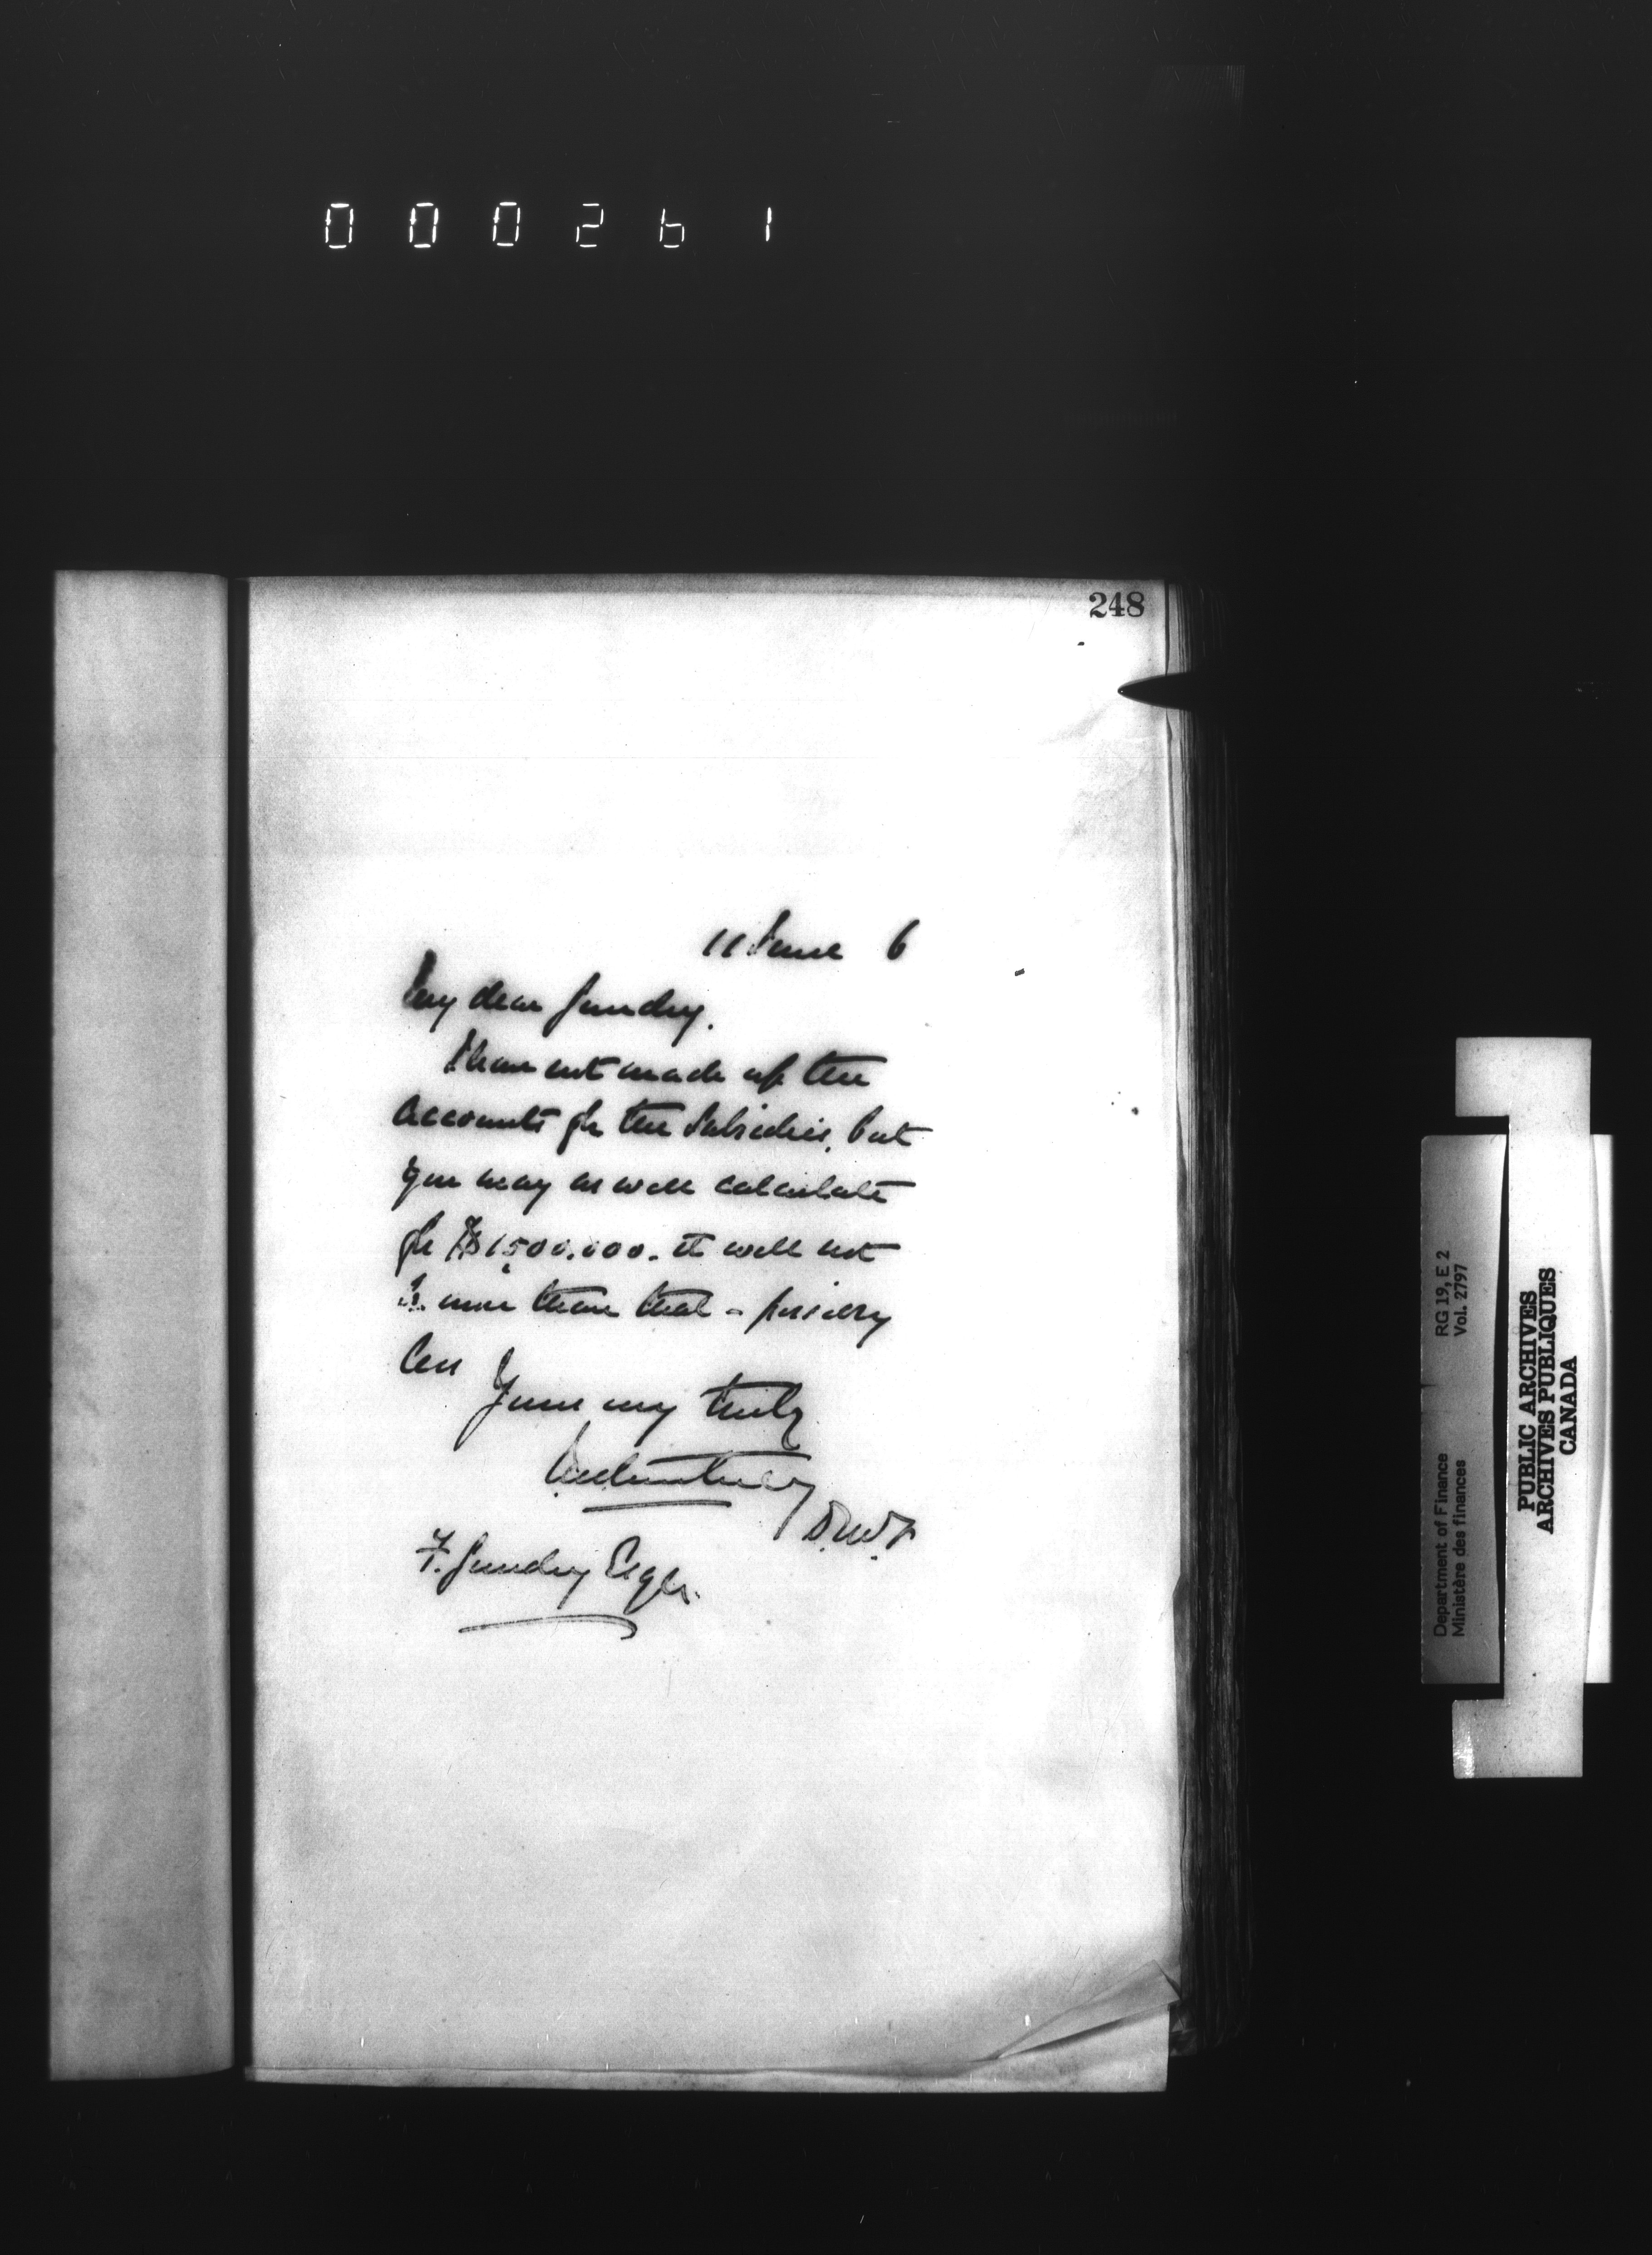 000261
248
11 June 6
My dear Gundry.
I have not made up the
accounts for the Subsidies, but
you may as well calculate
for $1,500.000. it will not
be more than that - possibly
less
Yours very truly
D.M.F
F. Gundry Esqr.
RG 19, E 2
Vol. 2797
Department of Finance
Ministère des finances
PUBLIC ARCHIVES
ARCHIVES PUBLIQUES
CANADA